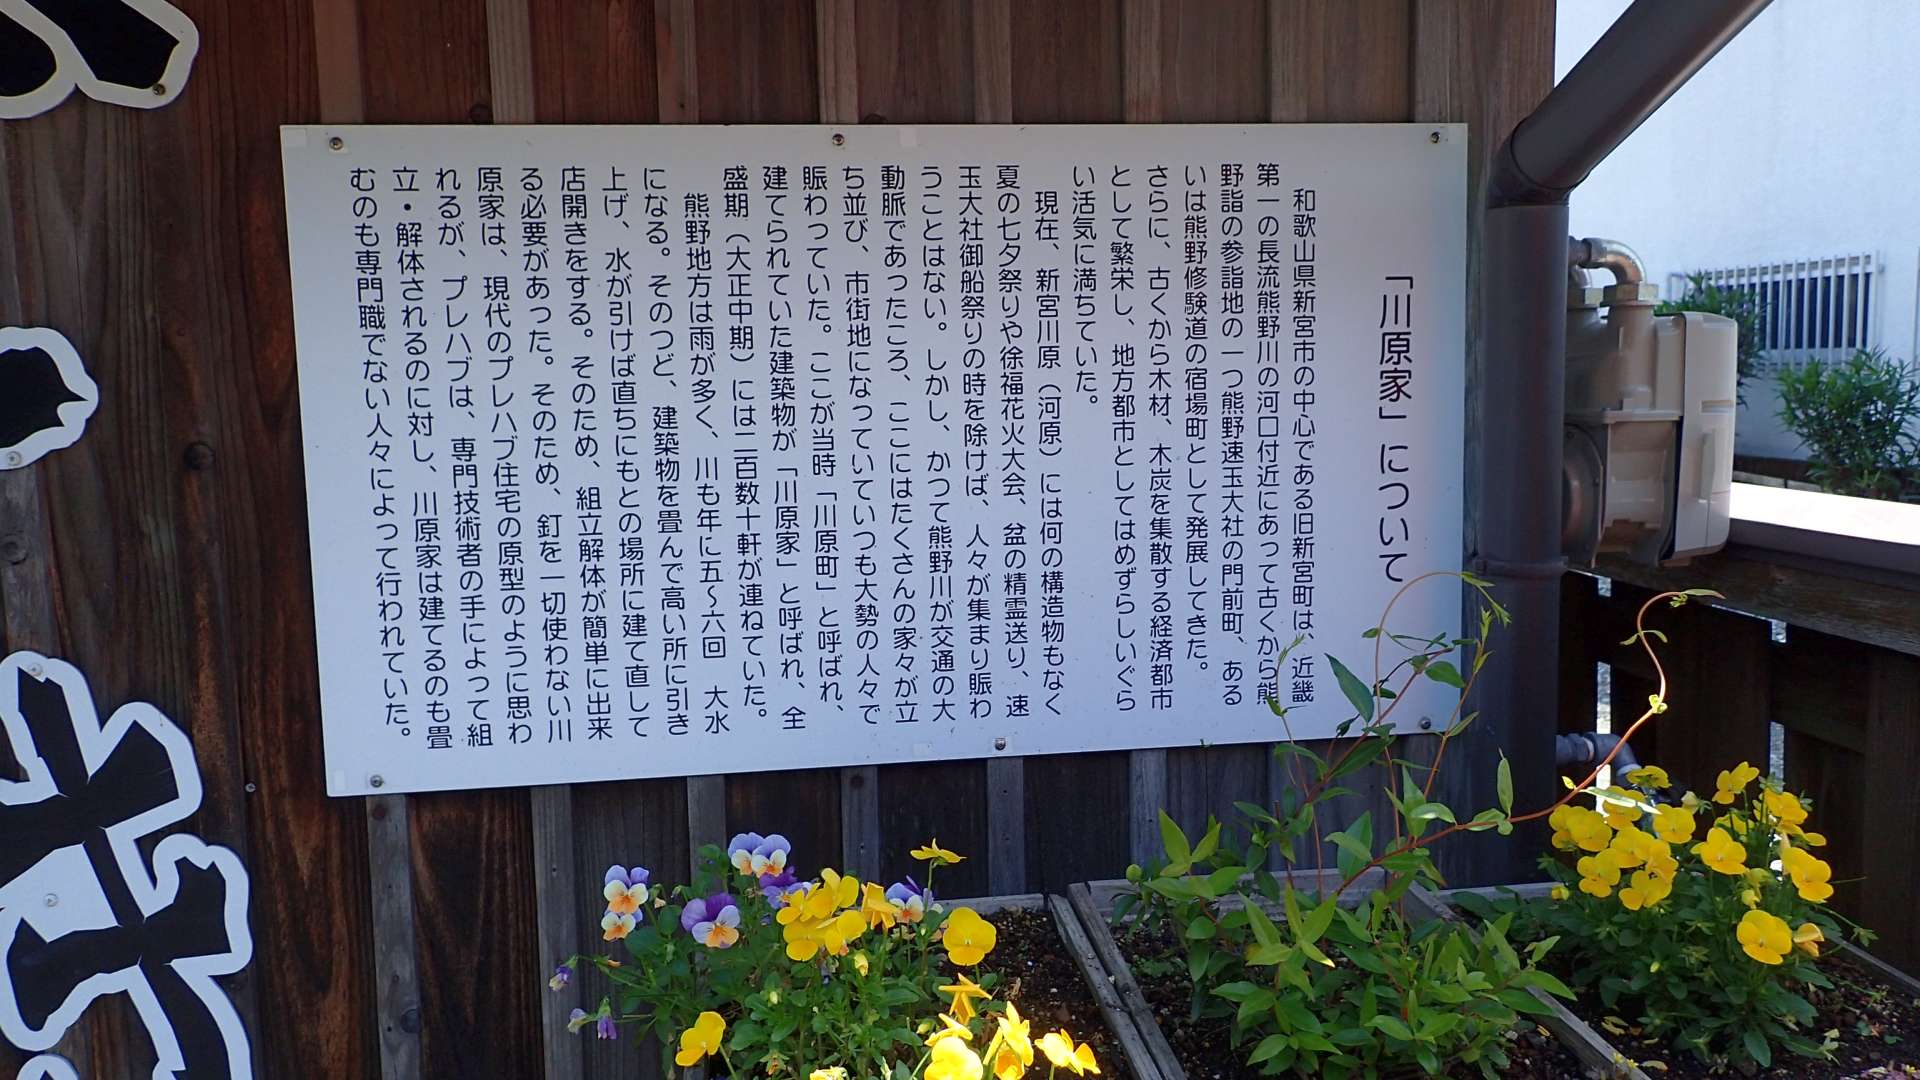 「川原家」について
和歌山県新宮市の中心である旧新宮町は、近畿
第一の長流熊野川の河口付近にあって古くから熊
野詣の参詣地の一つ熊野速玉大社の門前町、ある
いは熊野修験道の宿場町として発展してきた。
さらに、古くから木材、木炭を集散する経済都市
として繁栄し、地方都市としてはめずらしいぐら
い活気に満ちていた。
現在、新宮川原（河原）には何の構造物もなく
夏の七夕祭りや徐福花火大会、盆の精霊送り、速
玉大社御船祭りの時を除けば、人々が集まり賑わ
うことはない。しかし、かつて熊野川が交通の大
動脈であったころ、ここにはたくさんの家々が立
ち並び、市街地になっていていつも大勢の人々で
賑わっていた。ここが当時「川原町」と呼ばれ、
建てられていた建築物が「川原家」と呼ばれ、全
盛期（大正中期）には二百数十軒が連ねていた。
熊野地方は雨が多く、川も年に五～六回　大水
になる。そのつど、建築物を畳んで高い所に引き
上げ、水が引けば直ちにもとの場所に建て直して
店開きをする。そのため、組立解体が簡単に出来
る必要があった。そのため、釘を一切使わない川
原家は、現代のプレハブ住宅の原型のように思わ
れるが、プレハブは、専門技術者の手によって組
立・解体されるのに対し、川原家は建てるのも畳
むのも専門職でない人々によって行われていた。